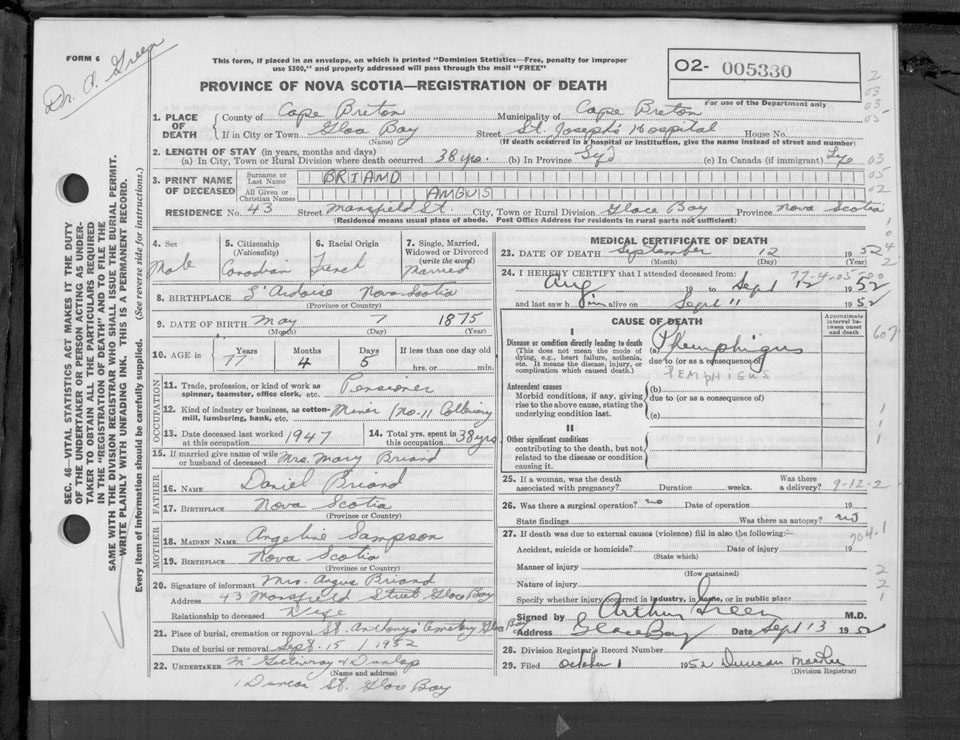 FORM 6
Dr. A. Green
This form, if placed in an envelope, on which is printed "Dominion Statistics—Free, penalty for improper
use $300," and properly addressed will pass through the mail "FREE"
PROVINCE OF NOVA SCOTIA—REGISTRATION OF DEATH
O2- 005330
For use of the Department only
1. PLACE OF DEATH
County of Cape Breton Municipality of Cape Breton
If in City or Town Glace Bay Street St. Joseph's Hospital House No.
(Name) (If death occurred in a hospital or institution, give the name instead of street and number)
2. LENGTH OF STAY (in years, months and days)
(a) In City, Town or Rural Division where death occurred 38 yrs. (b) In Province (c) In Canada (if immigrant) Lye
3. PRINT NAME OF DECEASED
Surname or Last Name BRIAND
All Given or Christian Names ANGUS
RESIDENCE No. 43 Street Mansfield St. City, Town or Rural Division Glace Bay Province Nova Scotia
(Residence means usual place of abode. Post Office Address for residents in rural parts not sufficient)
4. Sex Male
5. Citizenship (Nationality) Canadian
6. Racial Origin French
7. Single, Married, Widowed or Divorced (write the word) Married
8. BIRTHPLACE L'Ardoise Nova Scotia
(Province or Country)
9. DATE OF BIRTH May 7 1875
(Month) (Day) (Year)
10. AGE in Years 77 Months 4 Days 5 If less than one day old hrs. or min.
OCCUPATION
11. Trade, profession, or kind of work as spinner, teamster, office clerk, etc. Pensioner
12. Kind of industry or business, as cotton-mill, lumbering, bank, etc. Miner (No. 11 Colliery
13. Date deceased last worked at this occupation 1947
14. Total yrs. spent in this occupation 38 yrs
15. If married give name of wife or husband of deceased Mrs. Mary Briand
FATHER
16. NAME Daniel Briand
17. BIRTHPLACE Nova Scotia
(Province or Country)
MOTHER
18. MAIDEN NAME Angeline Sampson
19. BIRTHPLACE Nova Scotia
(Province or Country)
20. Signature of informant Mrs. Angus Briand
Address 43 Mansfield Street Glace Bay
Relationship to deceased Wife
21. Place of burial, cremation or removal St. Anthony's Cemetery Glace Bay
Date of burial or removal Sept. 15 / 1952
22. UNDERTAKER McGillivray & Dunlap
(Name and address)
1 Duncan St. Glace Bay
MEDICAL CERTIFICATE OF DEATH
23. DATE OF DEATH September 12 1952
(Month) (Day) (Year)
24. I HEREBY CERTIFY that I attended deceased from:
Aug 19 to Sept 12 1952
and last saw him alive on Sept 11 1952
CAUSE OF DEATH
Approximate interval between onset and death
I
Disease or condition directly leading to death (a) Phemphigus
(This does not mean the mode of dying, e.g., heart failure, asthenia, etc. It means the disease, injury, or complication which caused death.)
due to (or as consequence of)
PEMPHIGUS
Antecedent causes (b)
Morbid conditions, if any, giving rise to the above cause, stating the underlying condition last.
due to (or as a consequence of)
(c)
II
Other significant conditions contributing to the death, but not related to the disease or condition causing it.
25. If a woman, was the death associated with pregnancy? Duration weeks. Was there a delivery? 9-12-2
26. Was there a surgical operation? no Date of operation 19
State findings Was there an autopsy? no
27. If death was due to external causes (violence) fill in also the following:—
704.1
Accident, suicide or homicide? Date of injury 19
(State which)
Manner of injury
(How sustained)
Nature of injury
Specify whether injury occurred in industry, in home, or in public place
Signed by Arthur Green M.D.
Address Glace Bay Date Sept 13 1952
28. Division Registrar's Record Number
29. Filed October 1 1952 Duncan
(Division Registrar)
SEC. 46—VITAL STATISTICS ACT MAKES IT THE DUTY
OF THE UNDERTAKER OR PERSON ACTING AS UNDER-
TAKER TO OBTAIN ALL THE PARTICULARS REQUIRED
IN THE "REGISTRATION OF DEATH" AND TO FILE THE
SAME WITH THE DIVISION REGISTRAR WHO SHALL ISSUE THE BURIAL PERMIT.
WRITE PLAINLY WITH UNFADING INK. THIS IS A PERMANENT RECORD.
Every item of information should be carefully supplied. (See reverse side for instructions.)
607